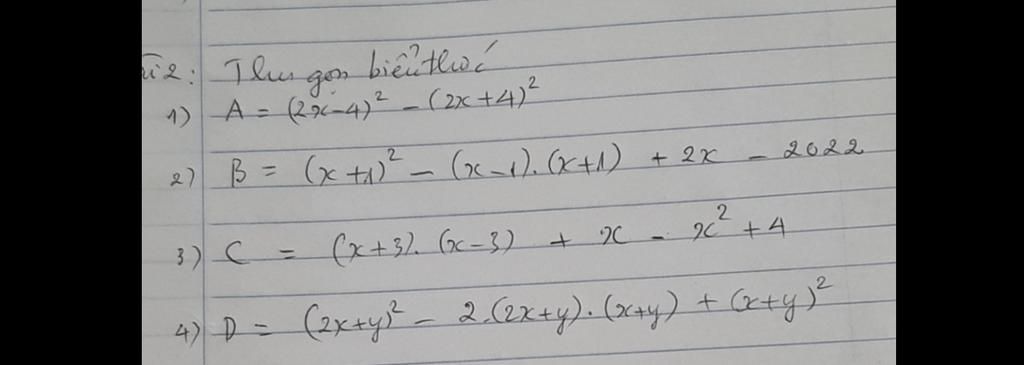 2: Thu gọn biểu thức
1) A = (2x-4)² - (2x+4)²
2) B = (x+1)² - (x-1).(x+1) + 2x - 2022
3) C = (x+3).(x-3) + x - x² + 4
4) D = (2x+y)² - 2.(2x+y).(x+y) + (x+y)²